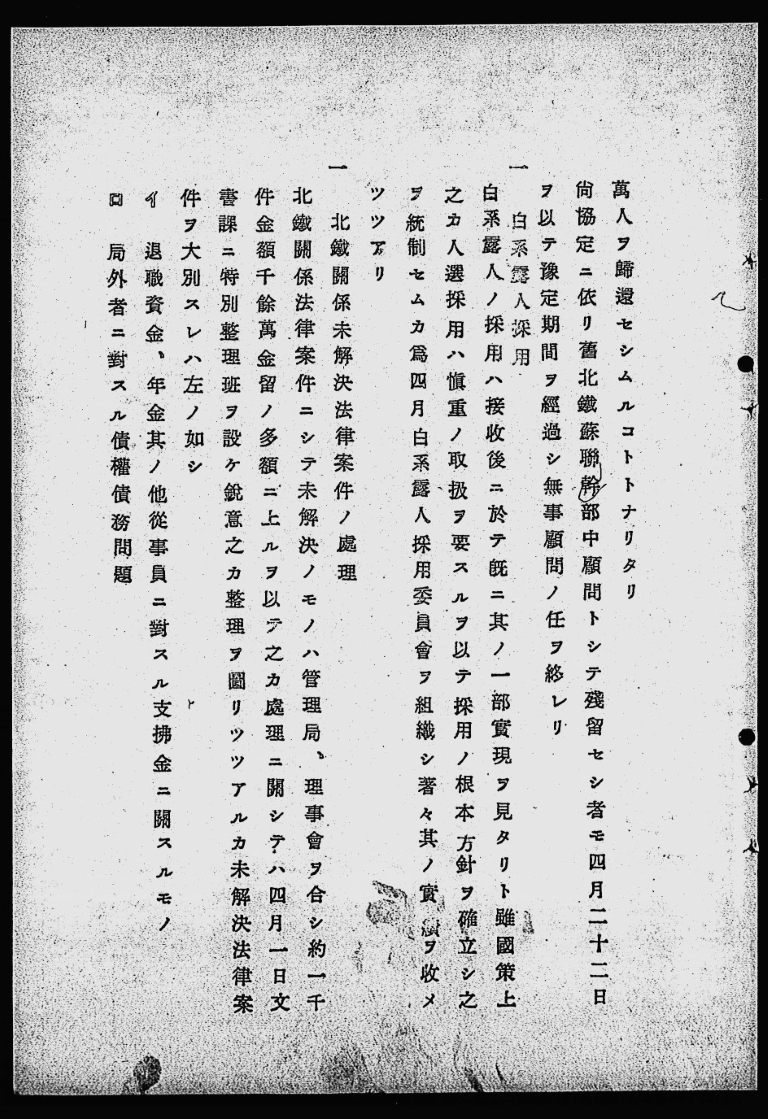 萬人ヲ歸還セシムルコトトナリタリ
尙協定ニ依リ舊北鐵蘇聯幹部中顧問トシテ殘留セシ者モ四月二十二日
ヲ以テ豫定期間ヲ經過シ無事顧問ノ任ヲ終レリ
一　白系露人採用
白系露人ノ採用ハ接收後ニ於テ旣ニ其ノ一部實現ヲ見タリト雖國策上
之カ人選採用ハ愼重ノ取扱ヲ要スルヲ以テ採用ノ根本方針ヲ確立シ之
ヲ統制セムカ爲四月白系露人採用委員會ヲ組織シ著々其ノ實績ヲ收メ
ツツアリ
一　北鐵關係未解決法律案件ノ處理
北鐵關係法律案件ニシテ未解決ノモノハ管理局、理事會ヲ合シ約一千
件金額千餘萬金留ノ多額ニ上ルヲ以テ之カ處理ニ關シテハ四月一日文
書課ニ特別整理班ヲ設ケ銳意之カ整理ヲ圖リツツアルカ未解決法律案
件ヲ大別スレハ左ノ如シ
イ　退職資金、年金其ノ他從事員ニ對スル支拂金ニ關スルモノ
ロ　局外者ニ對スル債權債務問題